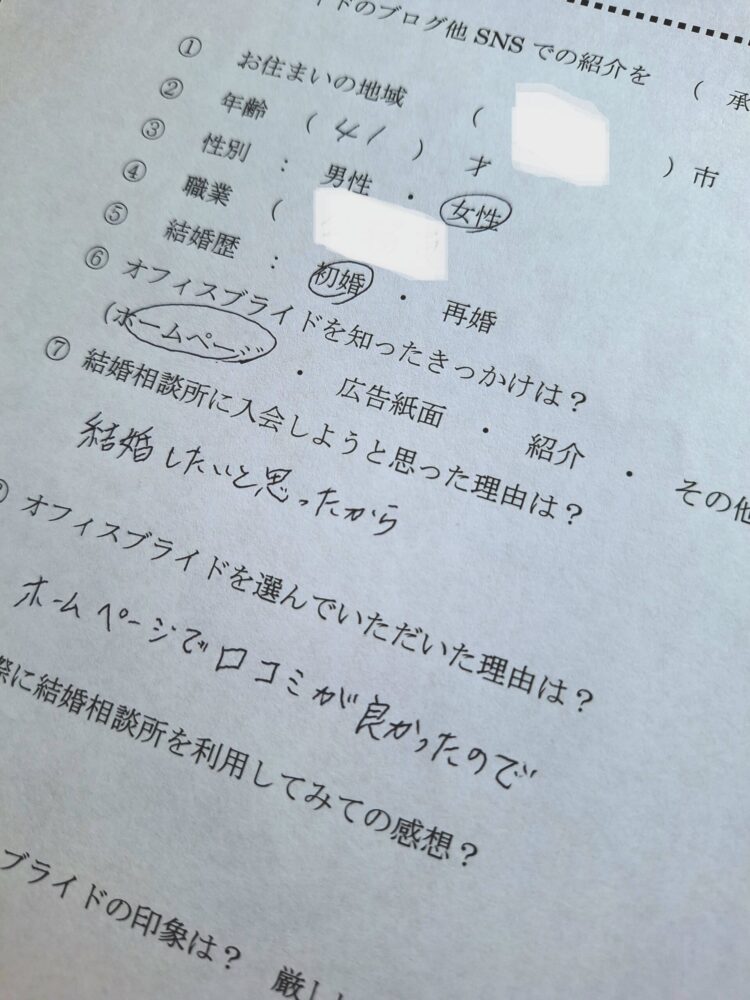 イドのブログ他 SNS での紹介を ( 承
① お住まいの地域 ( ) 市
② 年齢 ( 41 ) 才
③ 性別 : 男性 ・ 女性
④ 職業 (
⑤ 結婚歴 : 初婚 ・ 再婚
⑥ オフィスブライドを知ったきっかけは?
(ホームページ ・ 広告紙面 ・ 紹介 ・ その他
⑦ 結婚相談所に入会しようと思った理由は?
結婚したいと思ったから
オフィスブライドを選んでいただいた理由は?
ホームページで口コミが良かったので
際に結婚相談所を利用してみての感想?
ブライドの印象は? 厳し